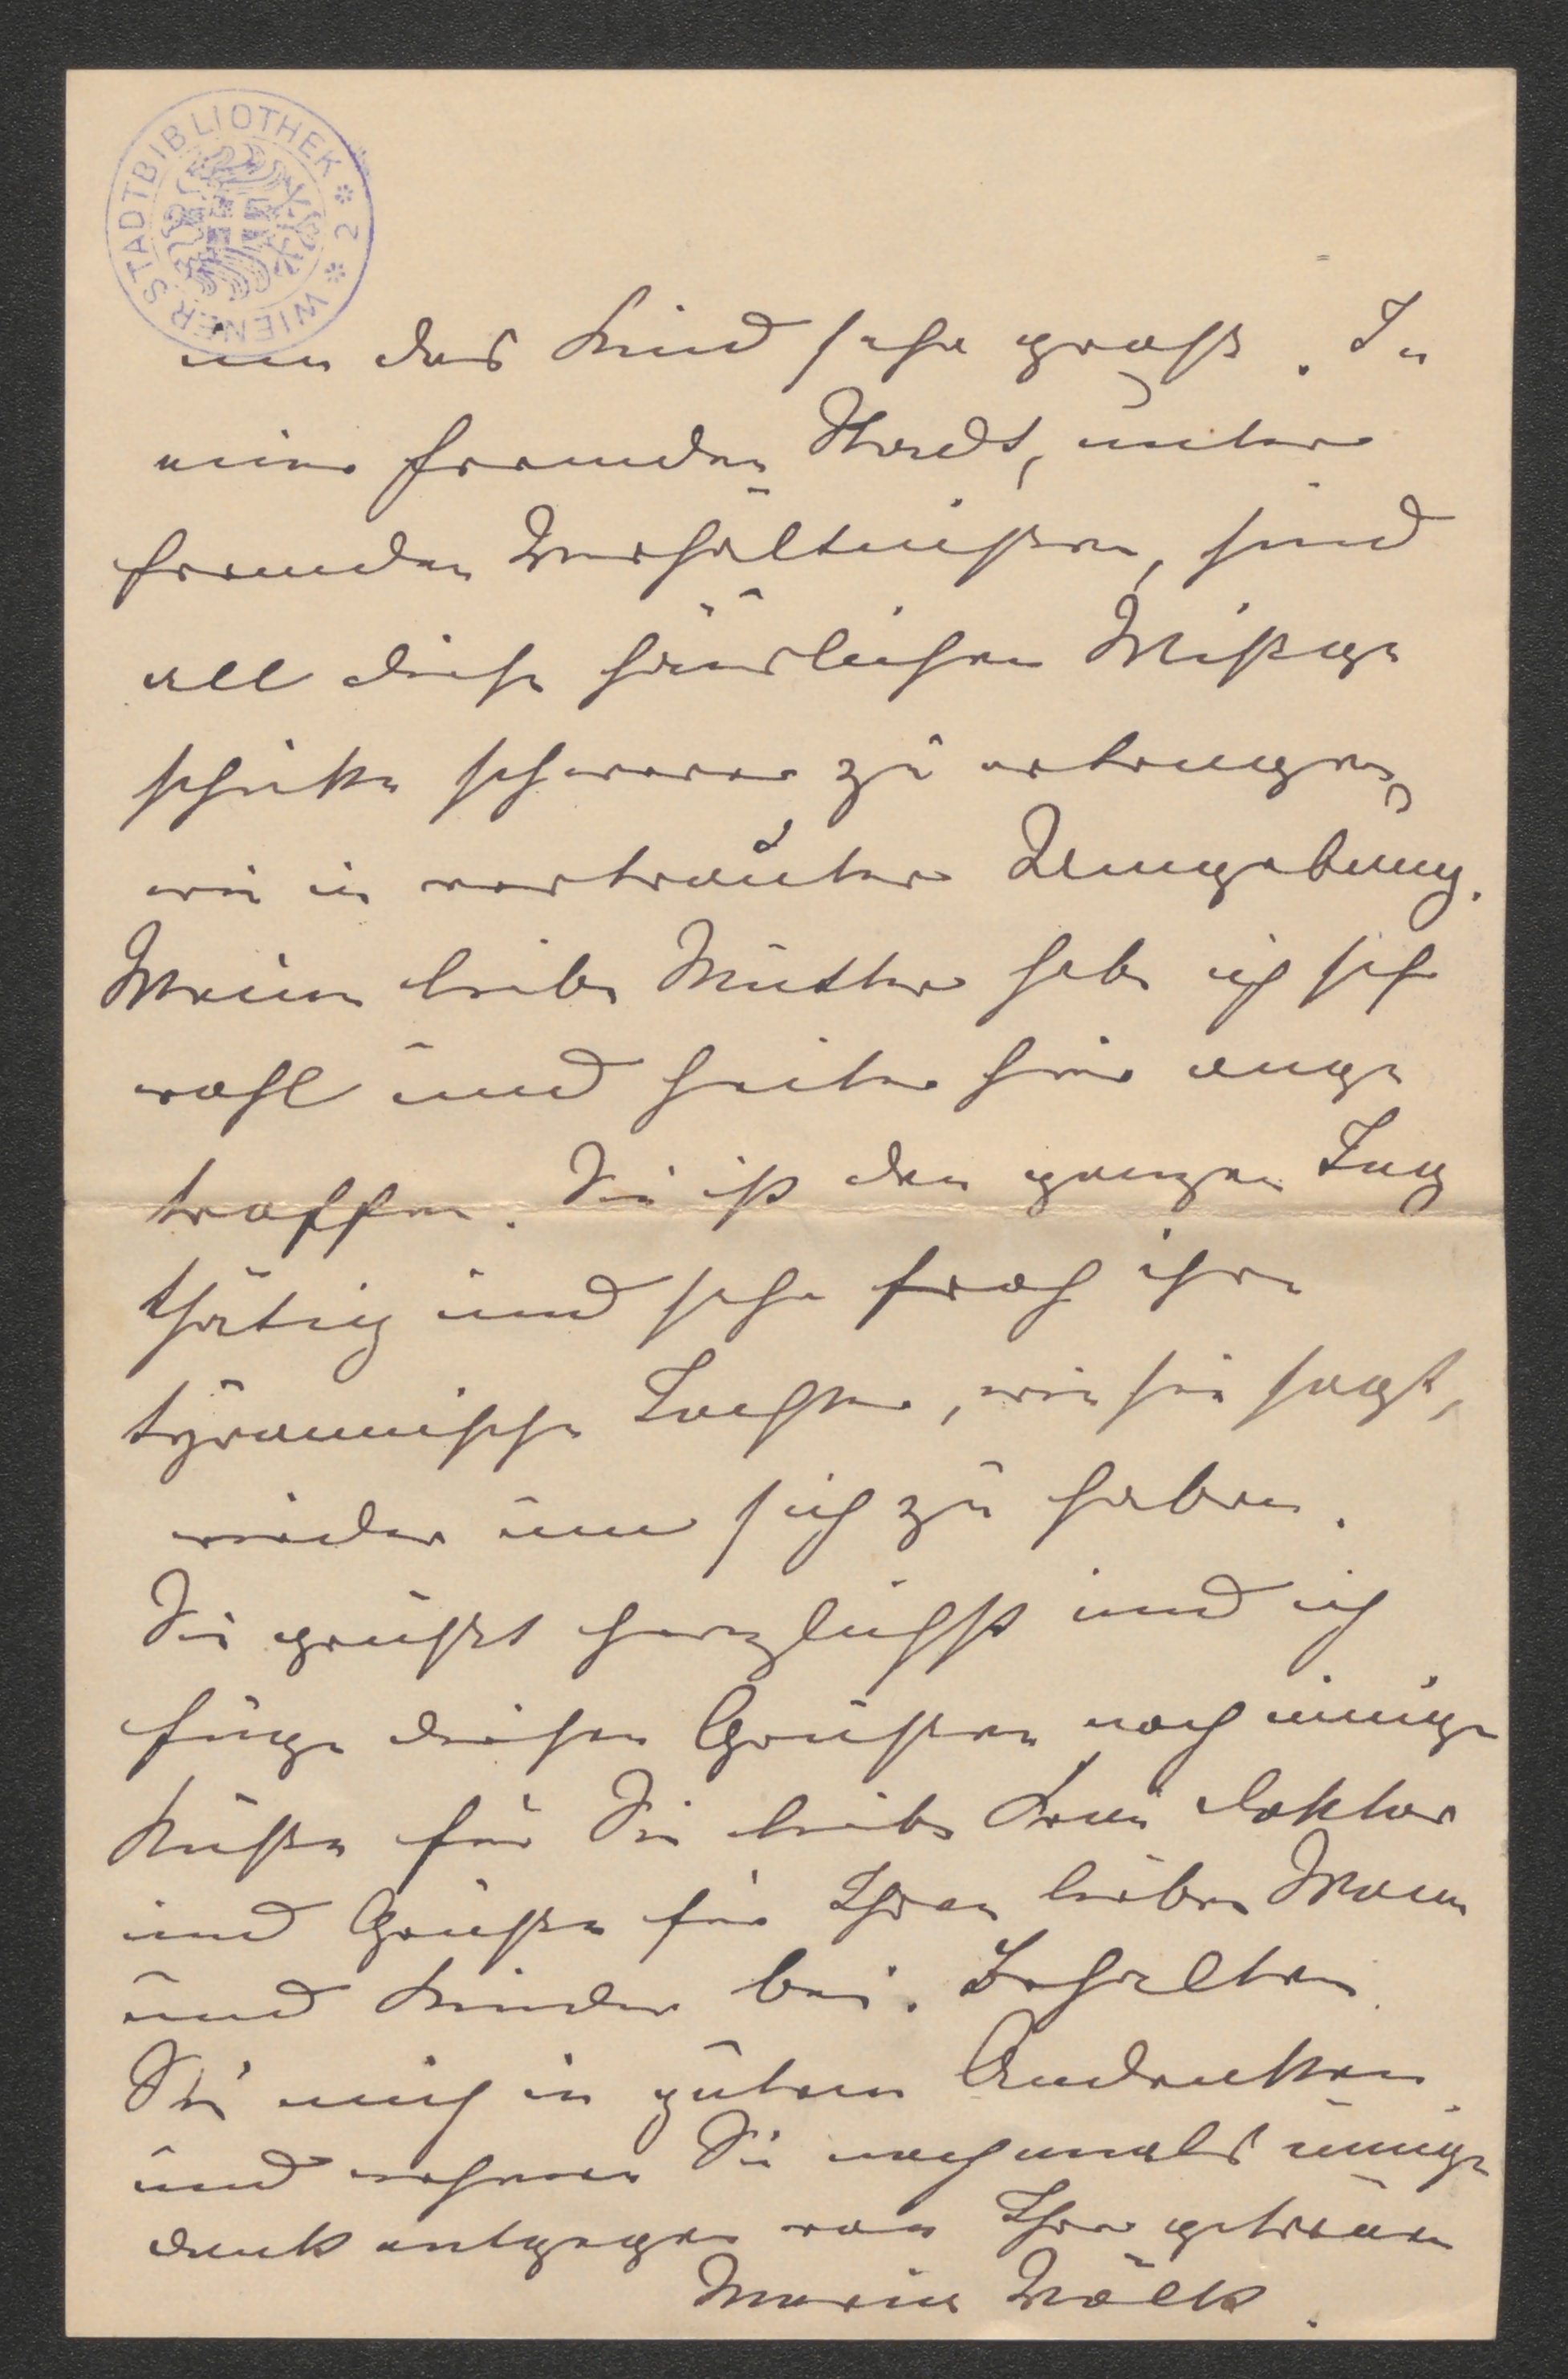 WIENER STADTBIBLIOTHEK * 2 *
um das Kind sehr groß. In
einer fremden Stadt, unter
fremden Verhältnißen, sind
all diese häuslichen Mißge
schike schwerer zu ertragen,
wie in vertrauter Umgebung.
Meine liebe Mutter habe ich sehr
wohl und heiter hier ange
troffen. Sie ist den ganzen Tag
thätig und sehr froh ihre
tyrannische Tochter, wie sie sagt,
wieder um sich zu haben.
Sie grüßt herzlichst und ich
füge diesen Grüßen noch innige
Küße für Sie liebe Frau Doktor
und Grüße für Ihren lieben Mann
und Kinder bei. Behalten
Sie mich in gutem Andenken
und nehmen Sie nochmals innige
dank entgegen von Ihrer getreuen
Marie Wölk.